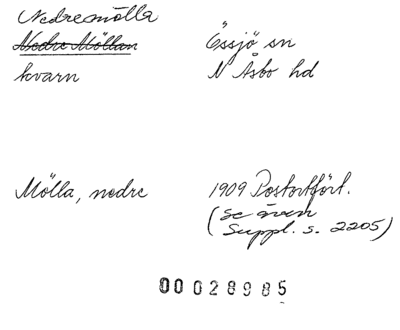 Nedremölla
Nedre Möllan Össjö sn
kvarn N Åsbo hd
Mölla, nedre 1909 Postortfört.
(se även
Suppl. s. 2205)
00028985